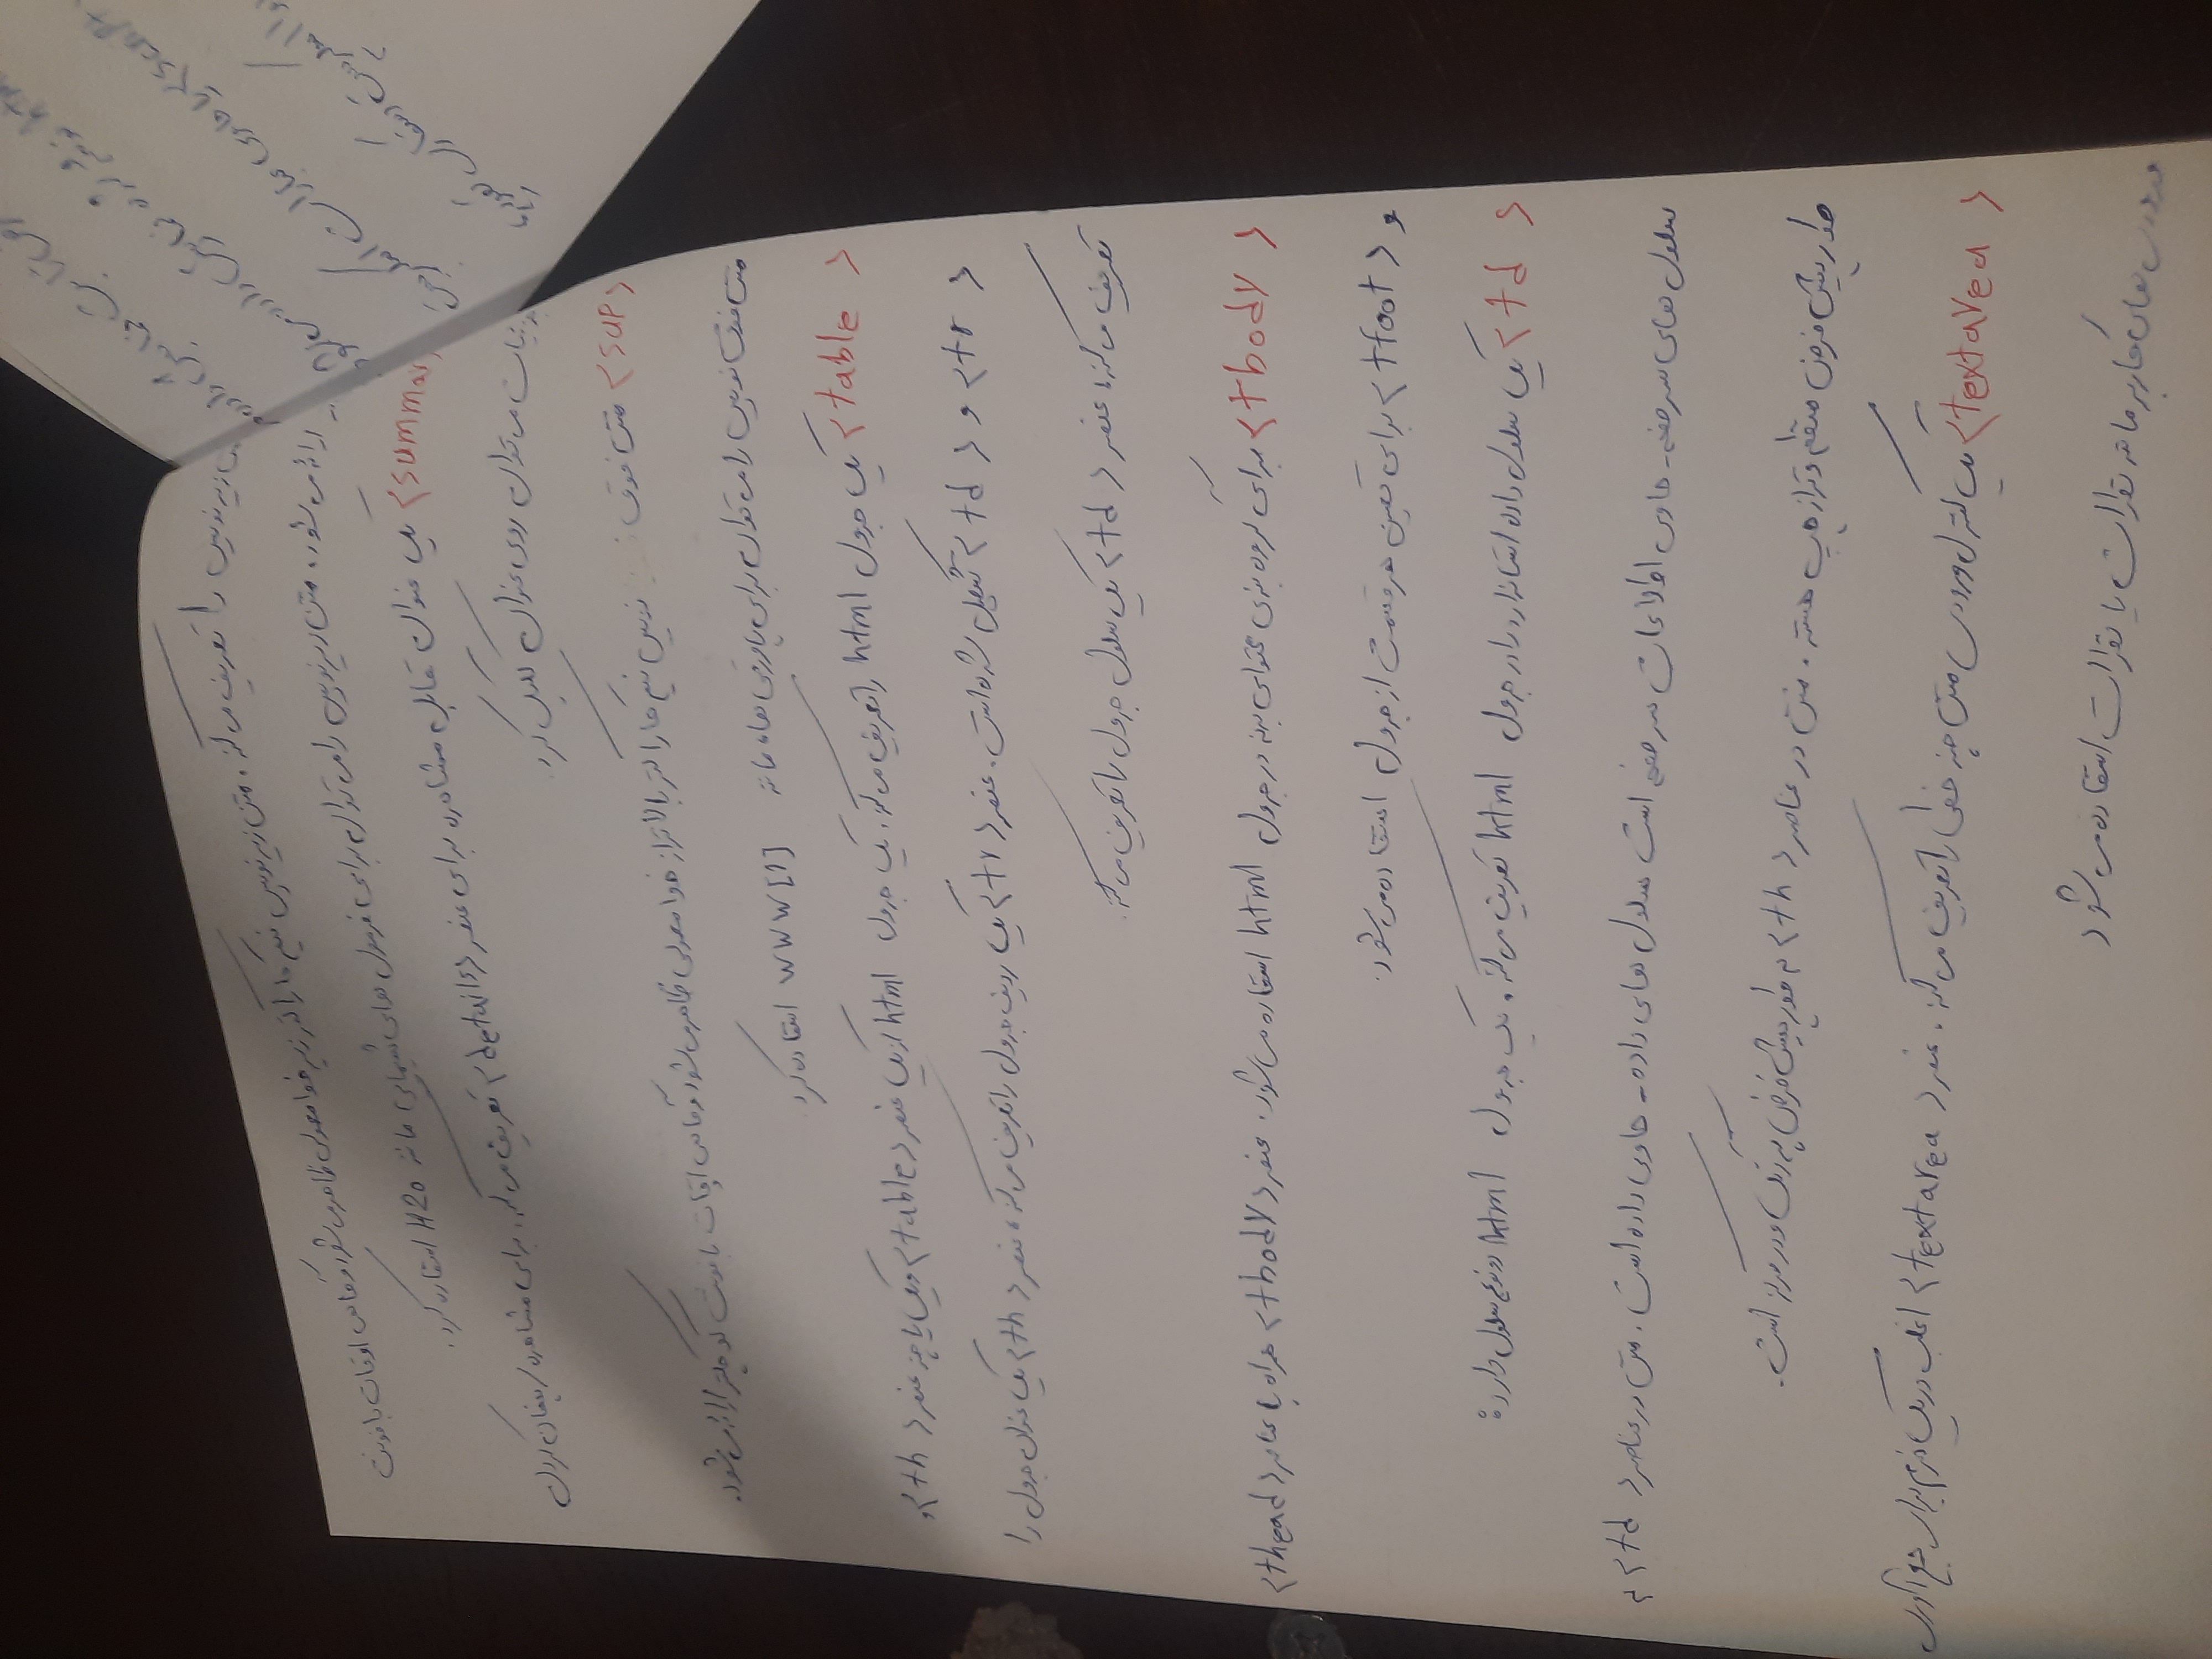 زیرنویس را تعریف می‌کند. متن زیرنویس نیم کاراکتر زیر خط معمولی ظاهر می‌شود و گاهی اوقات با فونت
ارائه می‌شود. متن زیرنویس را می‌توان برای فرمول های شیمیایی مانند H2o استفاده کرد.
<summar یک عنوان قابل مشاهده برای عنصر <details> تعریف می‌کند. برای مشاهده / پنهان کردن
جزئیات می‌توان روی عنوان کلیک کرد.
<sup> متن فوق نویس نیم کاراکتر بالاتر از خط معمولی ظاهر می‌شود و گاهی اوقات با فونت کوچکتر ارائه می‌شود.
متن فوق نویس را می‌توان برای پاورقی ها، مانند WWW[1] استفاده کرد
<table> یک جدول html را تعریف می‌کند. یک جدول html از یک عنصر <table> و یک یا چند عنصر <th> و
<tr> و <td> تشکیل شده است. عنصر <tr> یک ردیف جدول را تعریف می‌کند، عنصر <th> یک عنوان جدول را
تعریف می‌کند، عنصر <td> یک سلول جدول را تعریف می‌کند.
<tbody> برای گروه بندی محتوای بدنه در جدول html استفاده می‌شود. عنصر <tbody> همراه با عناصر <thead>
و <tfoot> برای تعیین هر قسمت از جدول استفاده می‌شود.
<td> یک سلول داده استاندارد را در جدول html تعریف می‌کند. یک جدول html دو نوع سلول دارد:
سلول های سر صفحه - حاوی اطلاعات سر صفحه است سلول های داده - حاوی داده است. متن در عناصر <td> به
طور پیش فرض منظم و تراز چپ هستند. متن در عناصر <th> به طور پیش فرض پر رنگ و در مرکز است.
<textarea> یک کنترل ورودی متن چند خطی را تعریف می‌کند. عنصر <textarea> اغلب در یک فرم برای جمع آوری
ورودی های کاربر مانند نظرات یا نظرات استفاده می‌شود
ثابت نمایش داده
html نوشته شده نمایش داده می‌شود
یا حاوی عبارات اسکریپت